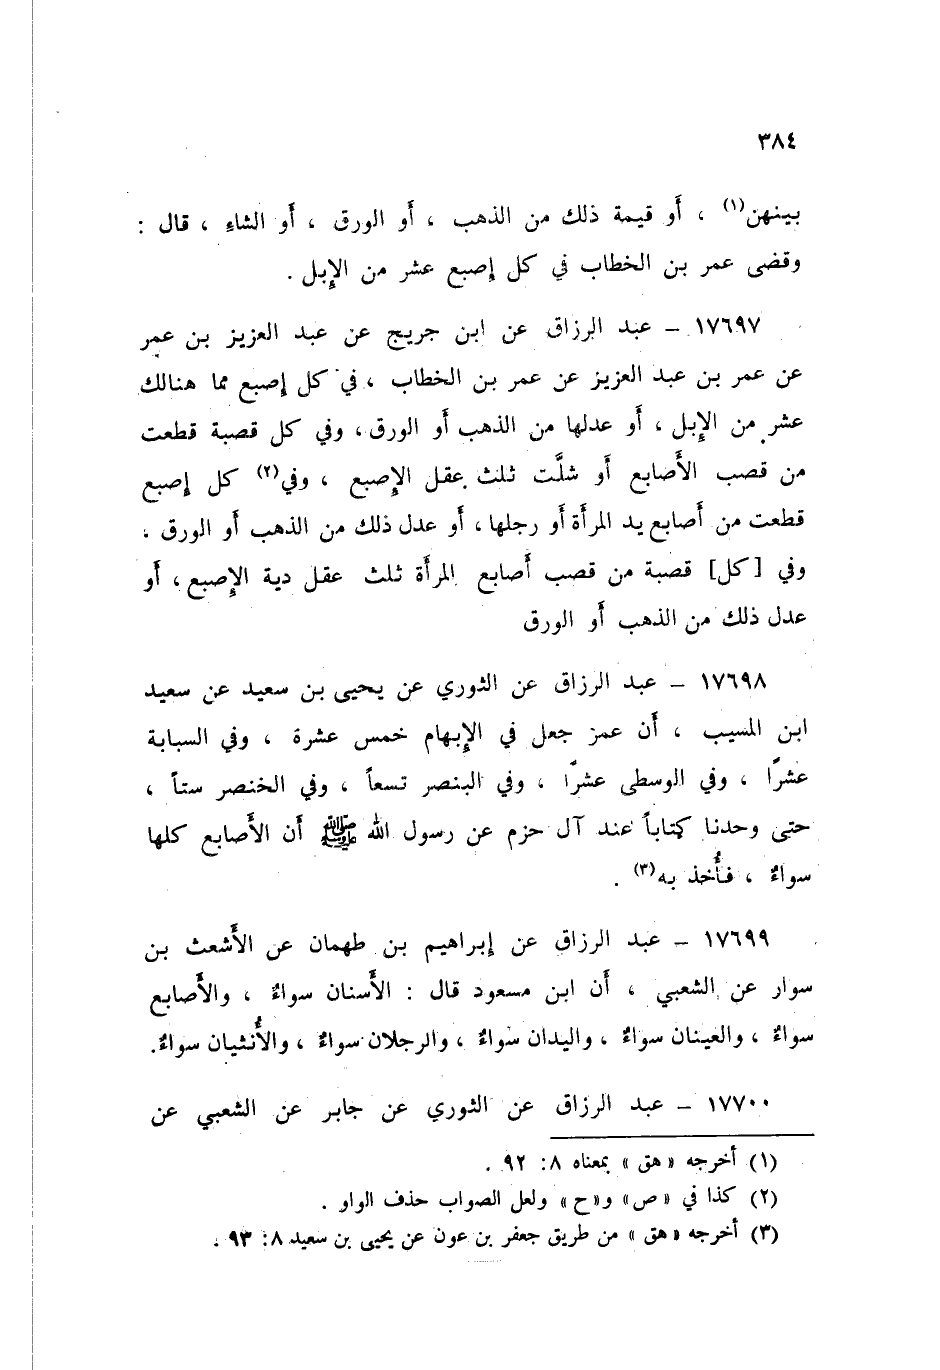 ٣٨٤
بينهن(١) ، أو قيمة ذلك من الذهب ، أو الورق ، أو الشاءِ ، قال :
وقضى عمر بن الخطاب في كل إصبع عشر من الإبل .
١٧٦٩٧ – عبد الرزاق عن ابن جريج عن عبد العزيز بن عمر
عن عمر بن عبد العزيز عن عمر بن الخطاب ، في كل إصبع مما هنالك
عشر من الإبل ، أو عدلها من الذهب أو الورق ، وفي كل قصبة قطعت
من قصب الأصابع أو شلَّت ثلث عقل الإصبع ، وفي(٢) كل إصبع
قطعت من أصابع يد المرأة أو رجلها ، أو عدل ذلك من الذهب أو الورق .
وفي [كل] قصبة من قصب أصابع المرأة ثلث عقل دية الإصبع ، أو
عدل ذلك من الذهب أو الورق
١٧٦٩٨ – عبد الرزاق عن الثوري عن يحيى بن سعيد عن سعيد
ابن المسيب ، أن عمر جعل في الإبهام خمس عشرة ، وفي السبابة
عشرًا ، وفي الوسطى عشرًا ، وفي البنصر تسعاً ، وفي الخنصر ستاً ،
حتى وجدنا كتاباً عند آل حزم عن رسول الله ﷺ أن الأصابع كلها
سواءٌ ، فأُخذ به(٣) .
١٧٦٩٩ – عبد الرزاق عن إبراهيم بن طهمان عن الأشعث بن
سوار عن الشعبي ، أن ابن مسعود قال : الأسنان سواءٌ ، والأصابع
سواءٌ ، والعينان سواءٌ ، واليدان سواءٌ ، والرجلان سواءٌ ، والأُنثيان سواءٌ.
١٧٧٠٠ – عبد الرزاق عن الثوري عن جابر عن الشعبي عن
(١) أخرجه « هق » بمعناه ٨: ٩٢ .
(٢) كذا في « ص » و« ح » ولعل الصواب حذف الواو .
(٣) أخرجه « هق » من طريق جعفر بن عون عن يحيى بن سعيد ٨: ٩٣ .